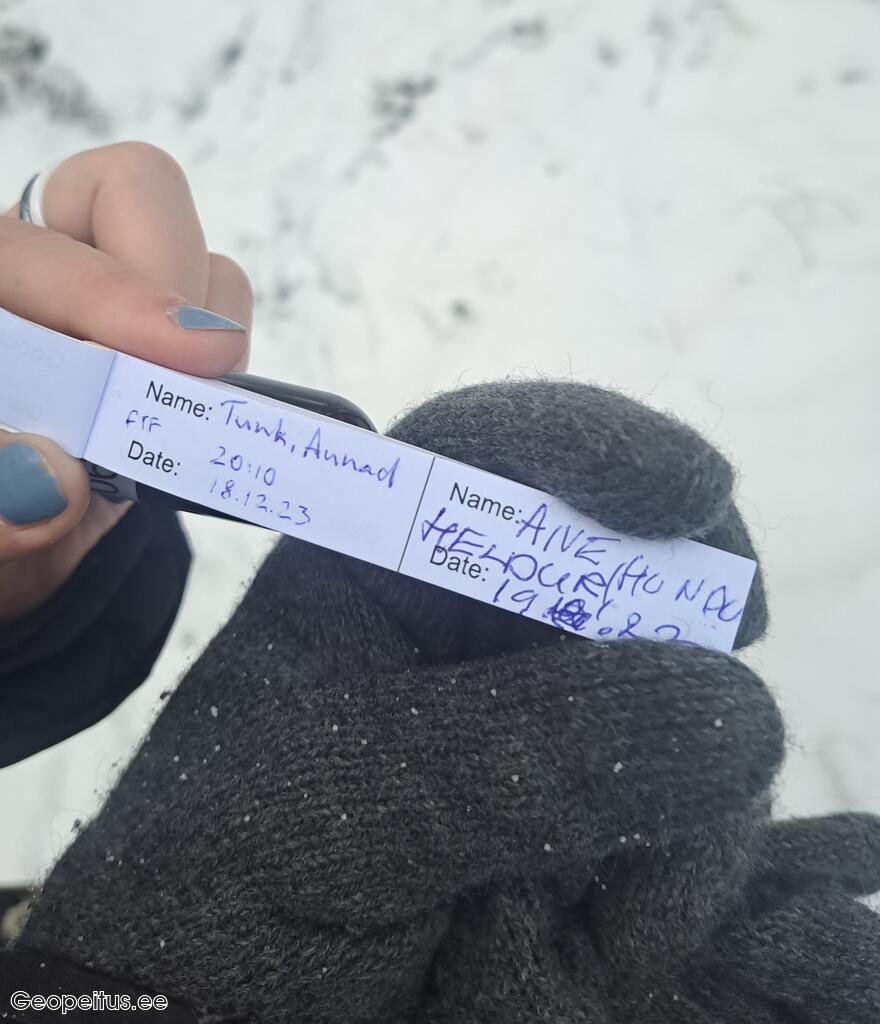 Name: Tunk, Annad
FTF
Date: 20:10
18.12.23
Name: AIVE
HELDUR/HUNDU
Date: 19
Geopeitus.ee